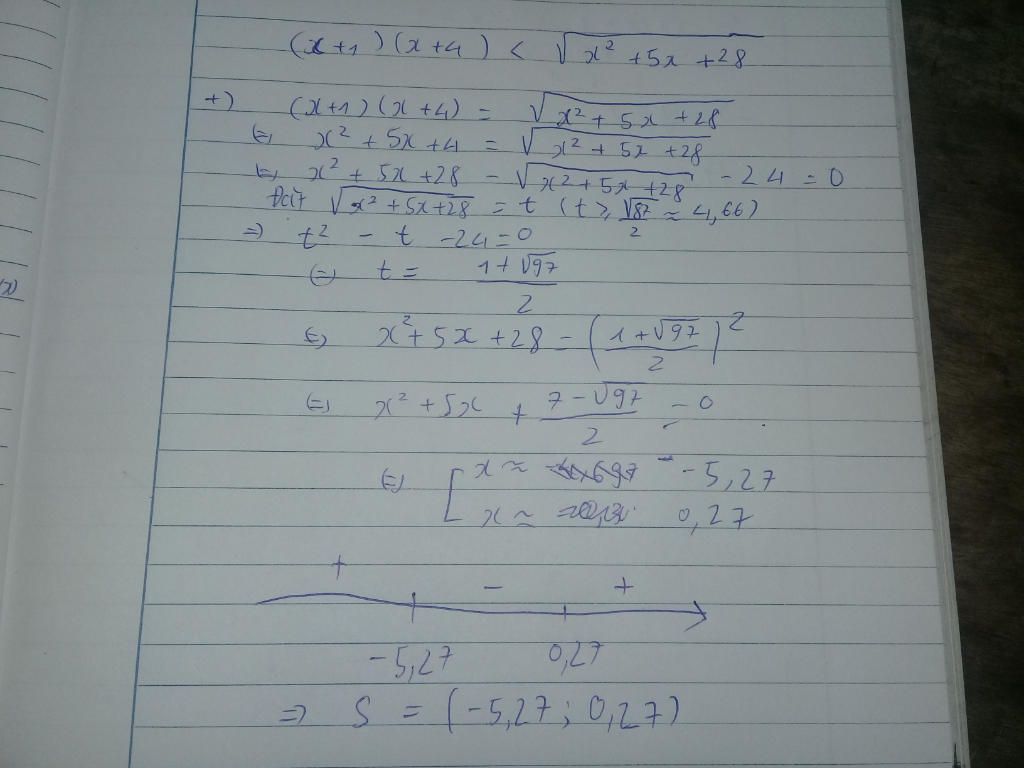 (x+1)(x+4) < √(x² + 5x + 28)
+) (x+1)(x+4) = √(x² + 5x + 28)
⇔ x² + 5x + 4 = √(x² + 5x + 28)
⇔ x² + 5x + 28 - √(x² + 5x + 28) - 24 = 0
Đặt √(x² + 5x + 28) = t (t ≥ √87/2 ≈ 4,66)
⇒ t² - t - 24 = 0
⇔ t = (1+√97)/2
⇔ x² + 5x + 28 = ((1+√97)/2)²
⇔ x² + 5x + (7-√97)/2 = 0
⇔ [ x ≈ -5,27
x ≈ 0,27
+ - +
-5,27 0,27
⇒ S = (-5,27; 0,27)